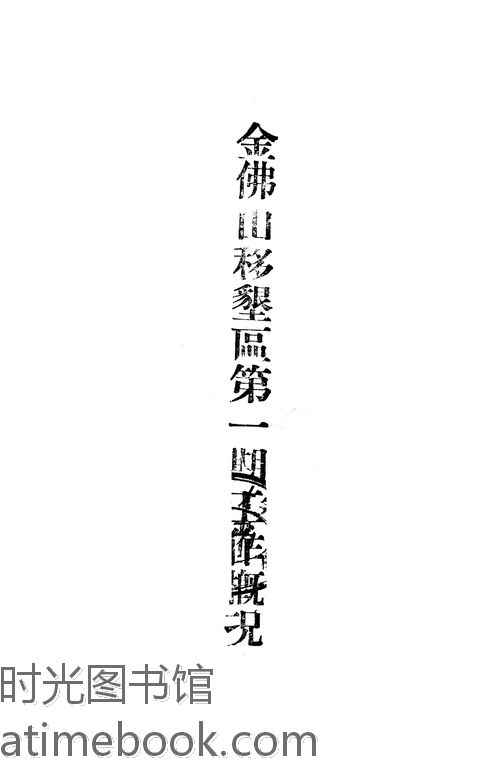 金佛山移墾區第一期工作概況
时光图书馆
atimebook.com